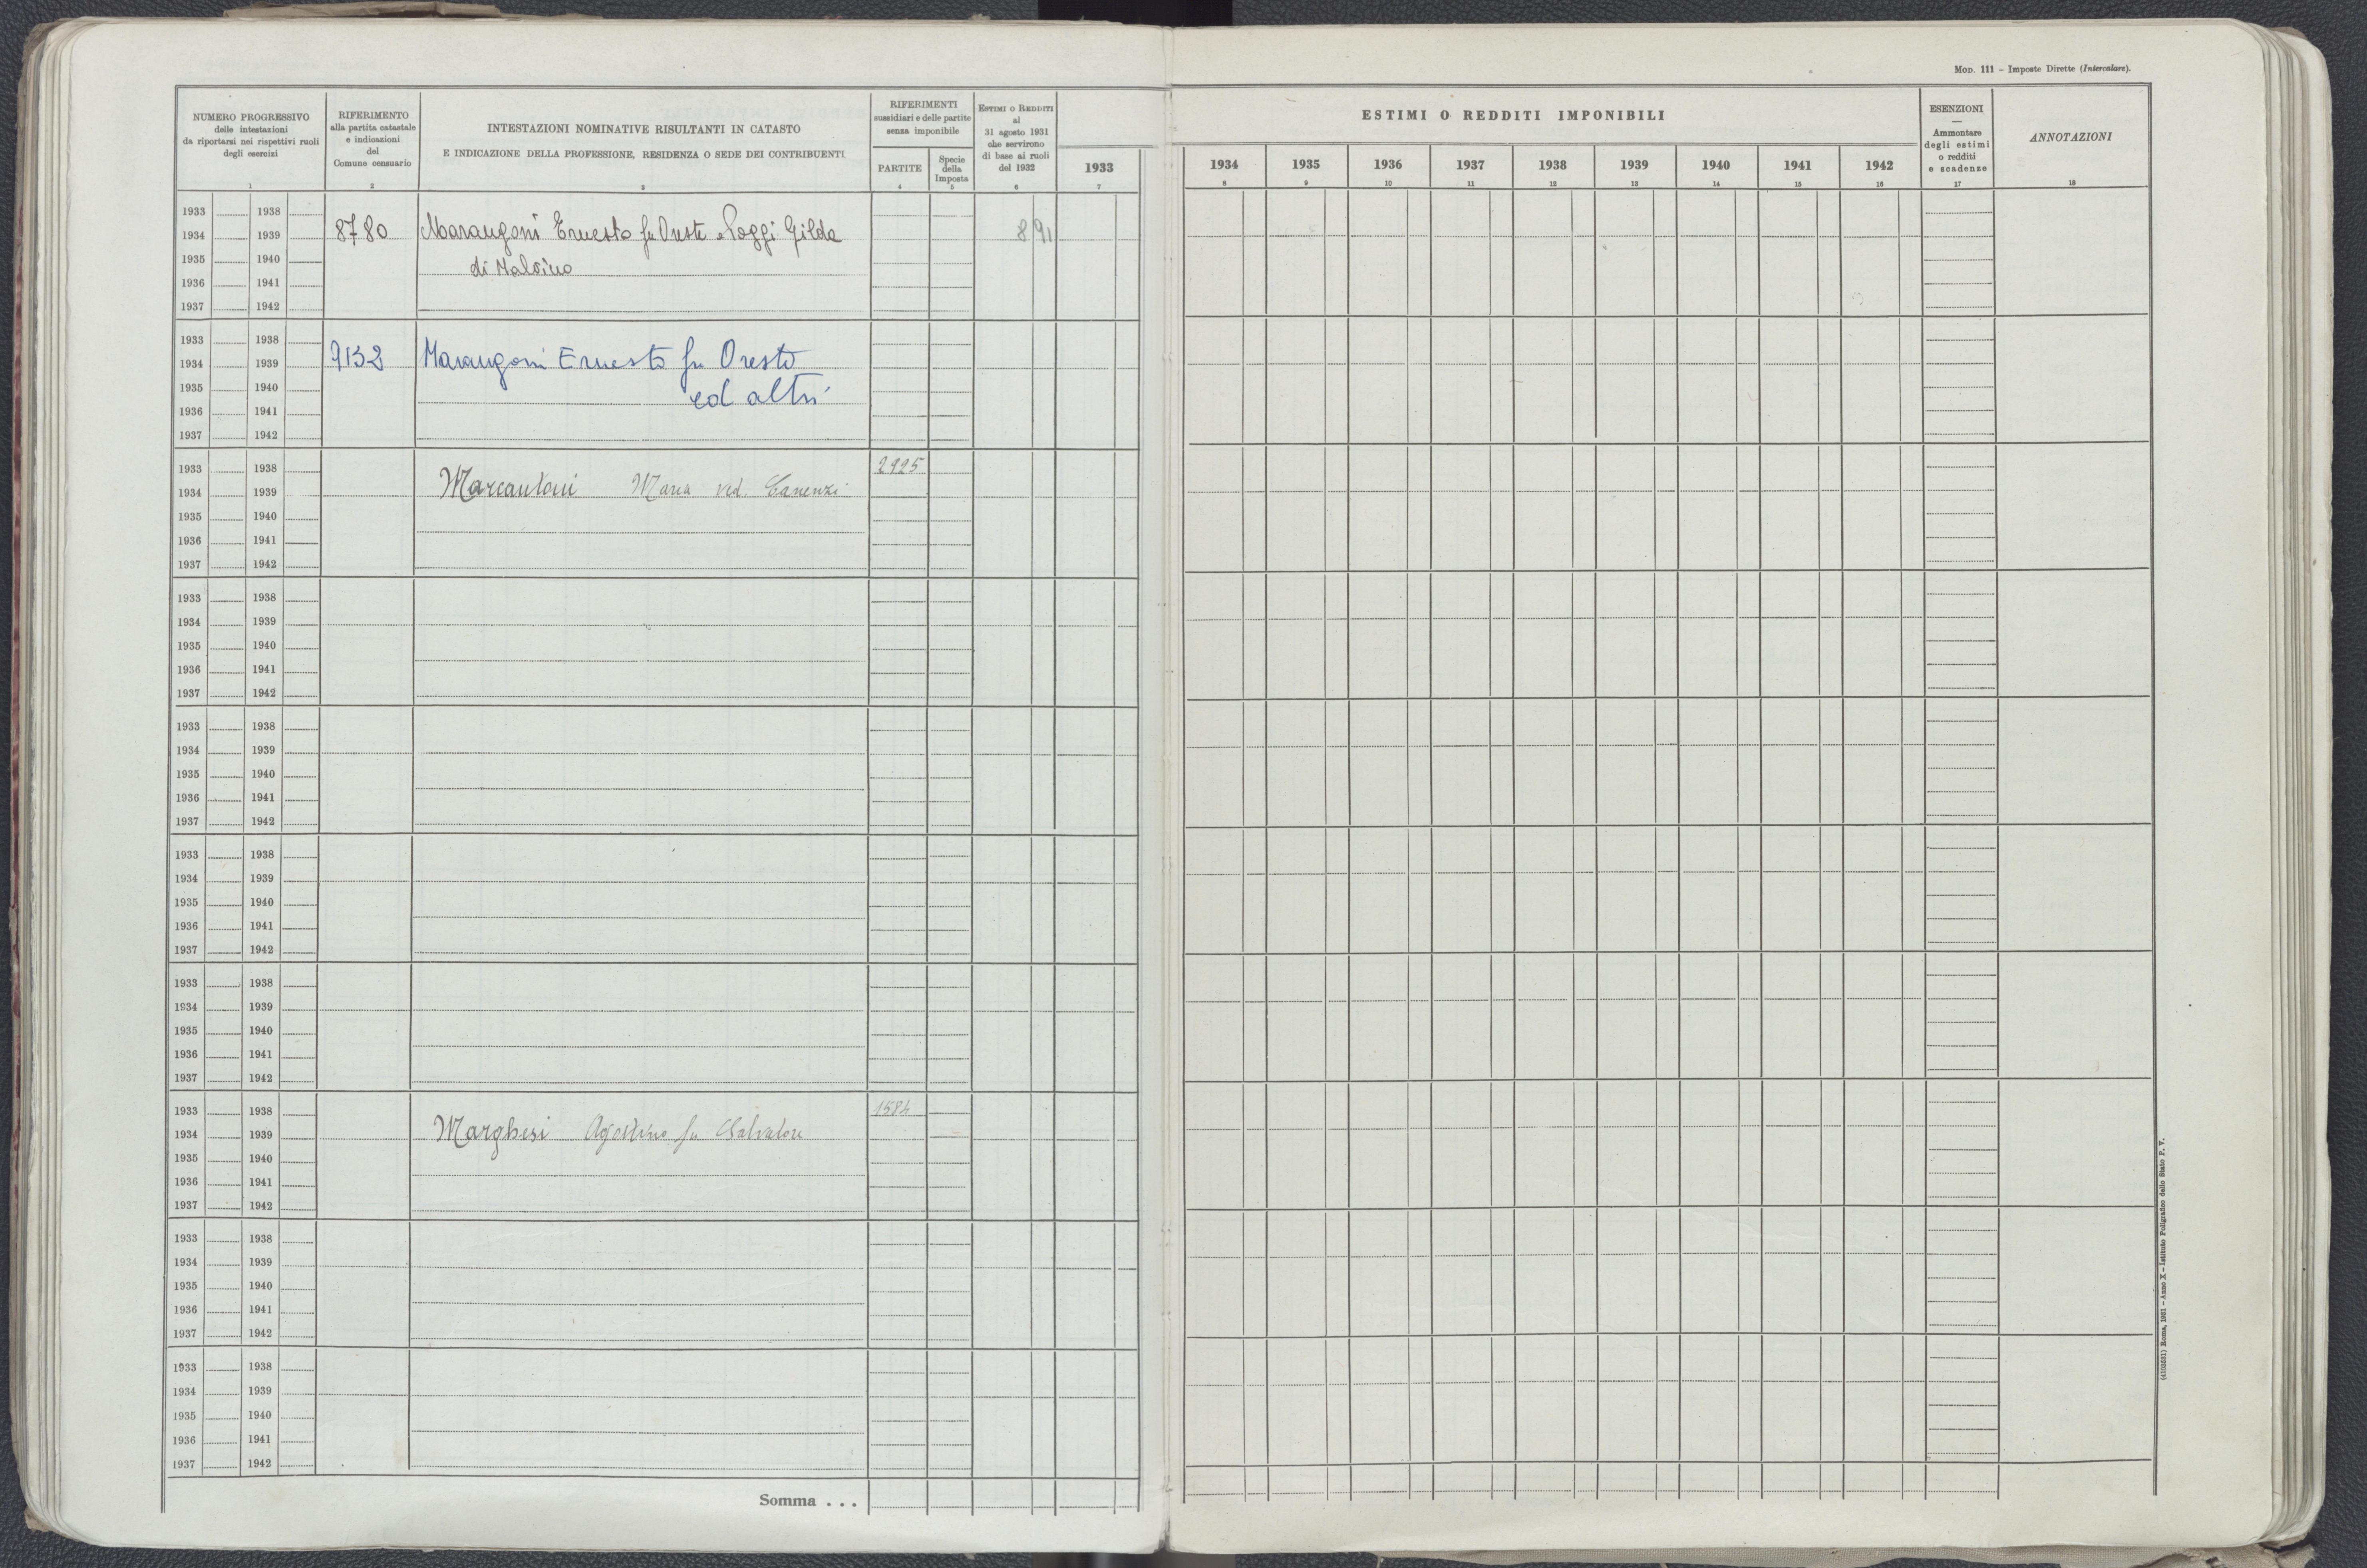 Mod. 111 – Imposte Dirette (Intercalare).
NUMERO PROGRESSIVO
delle intestazioni
da riportarsi nei rispettivi ruoli
degli esercizi
1
RIFERIMENTO
alla partita catastale
e indicazioni
del
Comune censuario
2
INTESTAZIONI NOMINATIVE RISULTANTI IN CATASTO
E INDICAZIONE DELLA PROFESSIONE, RESIDENZA O SEDE DEI CONTRIBUENTI
3
RIFERIMENTI
sussidiari e delle partite
senza imponibile
PARTITE
4
Specie
della
Imposta
5
Estimi o Redditi
al
31 agosto 1931
che servirono
di base ai ruoli
del 1932
6
1933
7
ESTIMI O REDDITI IMPONIBILI
1934 1935 1936 1937 1938 1939 1940 1941 1942
8 9 10 11 12 13 14 15 16
ESENZIONI
—
Ammontare
degli estimi
o redditi
e scadenze
17
ANNOTAZIONI
18
1933 1938
1934 1939 8780 Marangoni Ernesto fu Oreste e Poggi Gilda 8 91
1935 1940 di Malvino
1936 1941
1937 1942
1933 1938
1934 1939 7132 Marangoni Ernesto fu Oreste
1935 1940 ed altri
1936 1941
1937 1942
1933 1938 2925
1934 1939 Marcantoni Maria ved. Canenzi
1935 1940
1936 1941
1937 1942
1933 1938
1934 1939
1935 1940
1936 1941
1937 1942
1933 1938
1934 1939
1935 1940
1936 1941
1937 1942
1933 1938
1934 1939
1935 1940
1936 1941
1937 1942
1933 1938
1934 1939
1935 1940
1936 1941
1937 1942
1933 1938 1584
1934 1939 Marghesi Agostino fu Salvatore
1935 1940
1936 1941
1937 1942
1933 1938
1934 1939
1935 1940
1936 1941
1937 1942
1933 1938
1934 1939
1935 1940
1936 1941
1937 1942
Somma . . .
(4103631) Roma, 1931 – Anno X – Istituto Poligrafico dello Stato P. V.